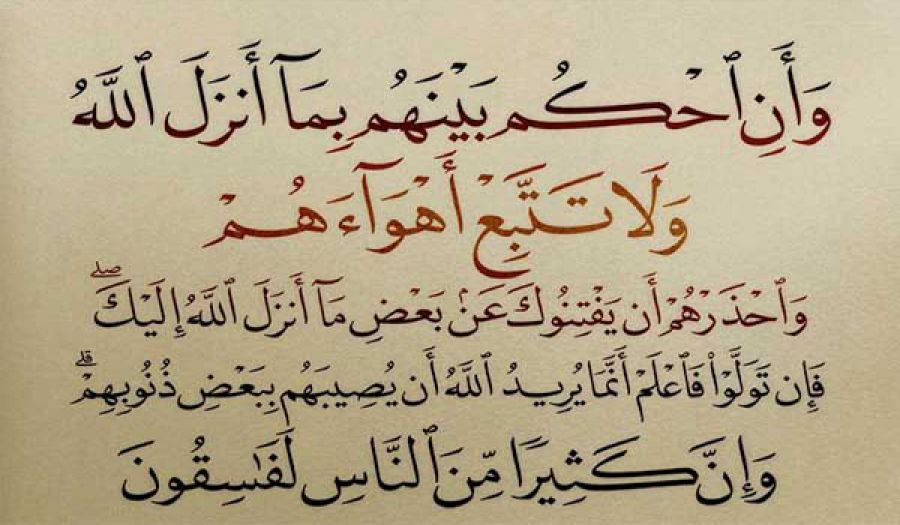 وَأَنِ ٱحْكُم بَيْنَهُم بِمَآ أَنزَلَ ٱللَّهُ
وَلَا تَتَّبِعْ أَهْوَآءَهُمْ
وَٱحْذَرْهُمْ أَن يَفْتِنُوكَ عَنۢ بَعْضِ مَآ أَنزَلَ ٱللَّهُ إِلَيْكَۖ
فَإِن تَوَلَّوْا۟ فَٱعْلَمْ أَنَّمَا يُرِيدُ ٱللَّهُ أَن يُصِيبَهُم بِبَعْضِ ذُنُوبِهِمْۗ
وَإِنَّ كَثِيرًا مِّنَ ٱلنَّاسِ لَفَٰسِقُونَ